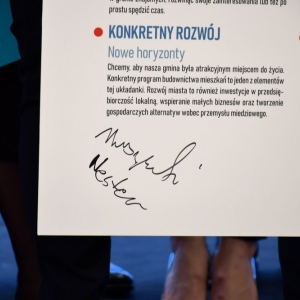 prostu spędzić czas.
KONKRETNY ROZWÓJ
Nowe horyzonty
Chcemy, aby nasza gmina była atrakcyjnym miejscem do życia.
Konkretny program budownictwa mieszkań to jeden z elementów
tej układanki. Rozwój miasta to również inwestycje w przedsię-
biorczość lokalną, wspieranie małych biznesów oraz tworzenie
gospodarczych alternatyw wobec przemysłu miedziowego.